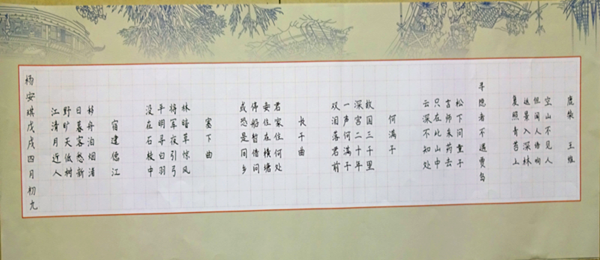 鹿柴 王维
空山不见人
但闻人语响
返景入深林
复照青苔上
寻隐者不遇贾岛
松下问童子
言师采药去
只在此山中
云深不知处
何满子
故国三千里
深宫二十年
一声何满子
双泪落君前
长干曲
君家住何处
妾住在横塘
停船暂借问
或恐是同乡
塞下曲
林暗草惊风
将军夜引弓
平明寻白羽
没在石棱中
宿建德江
移舟泊烟渚
日暮客愁新
野旷天低树
江清月近人
杨安琪戊戌四月初九